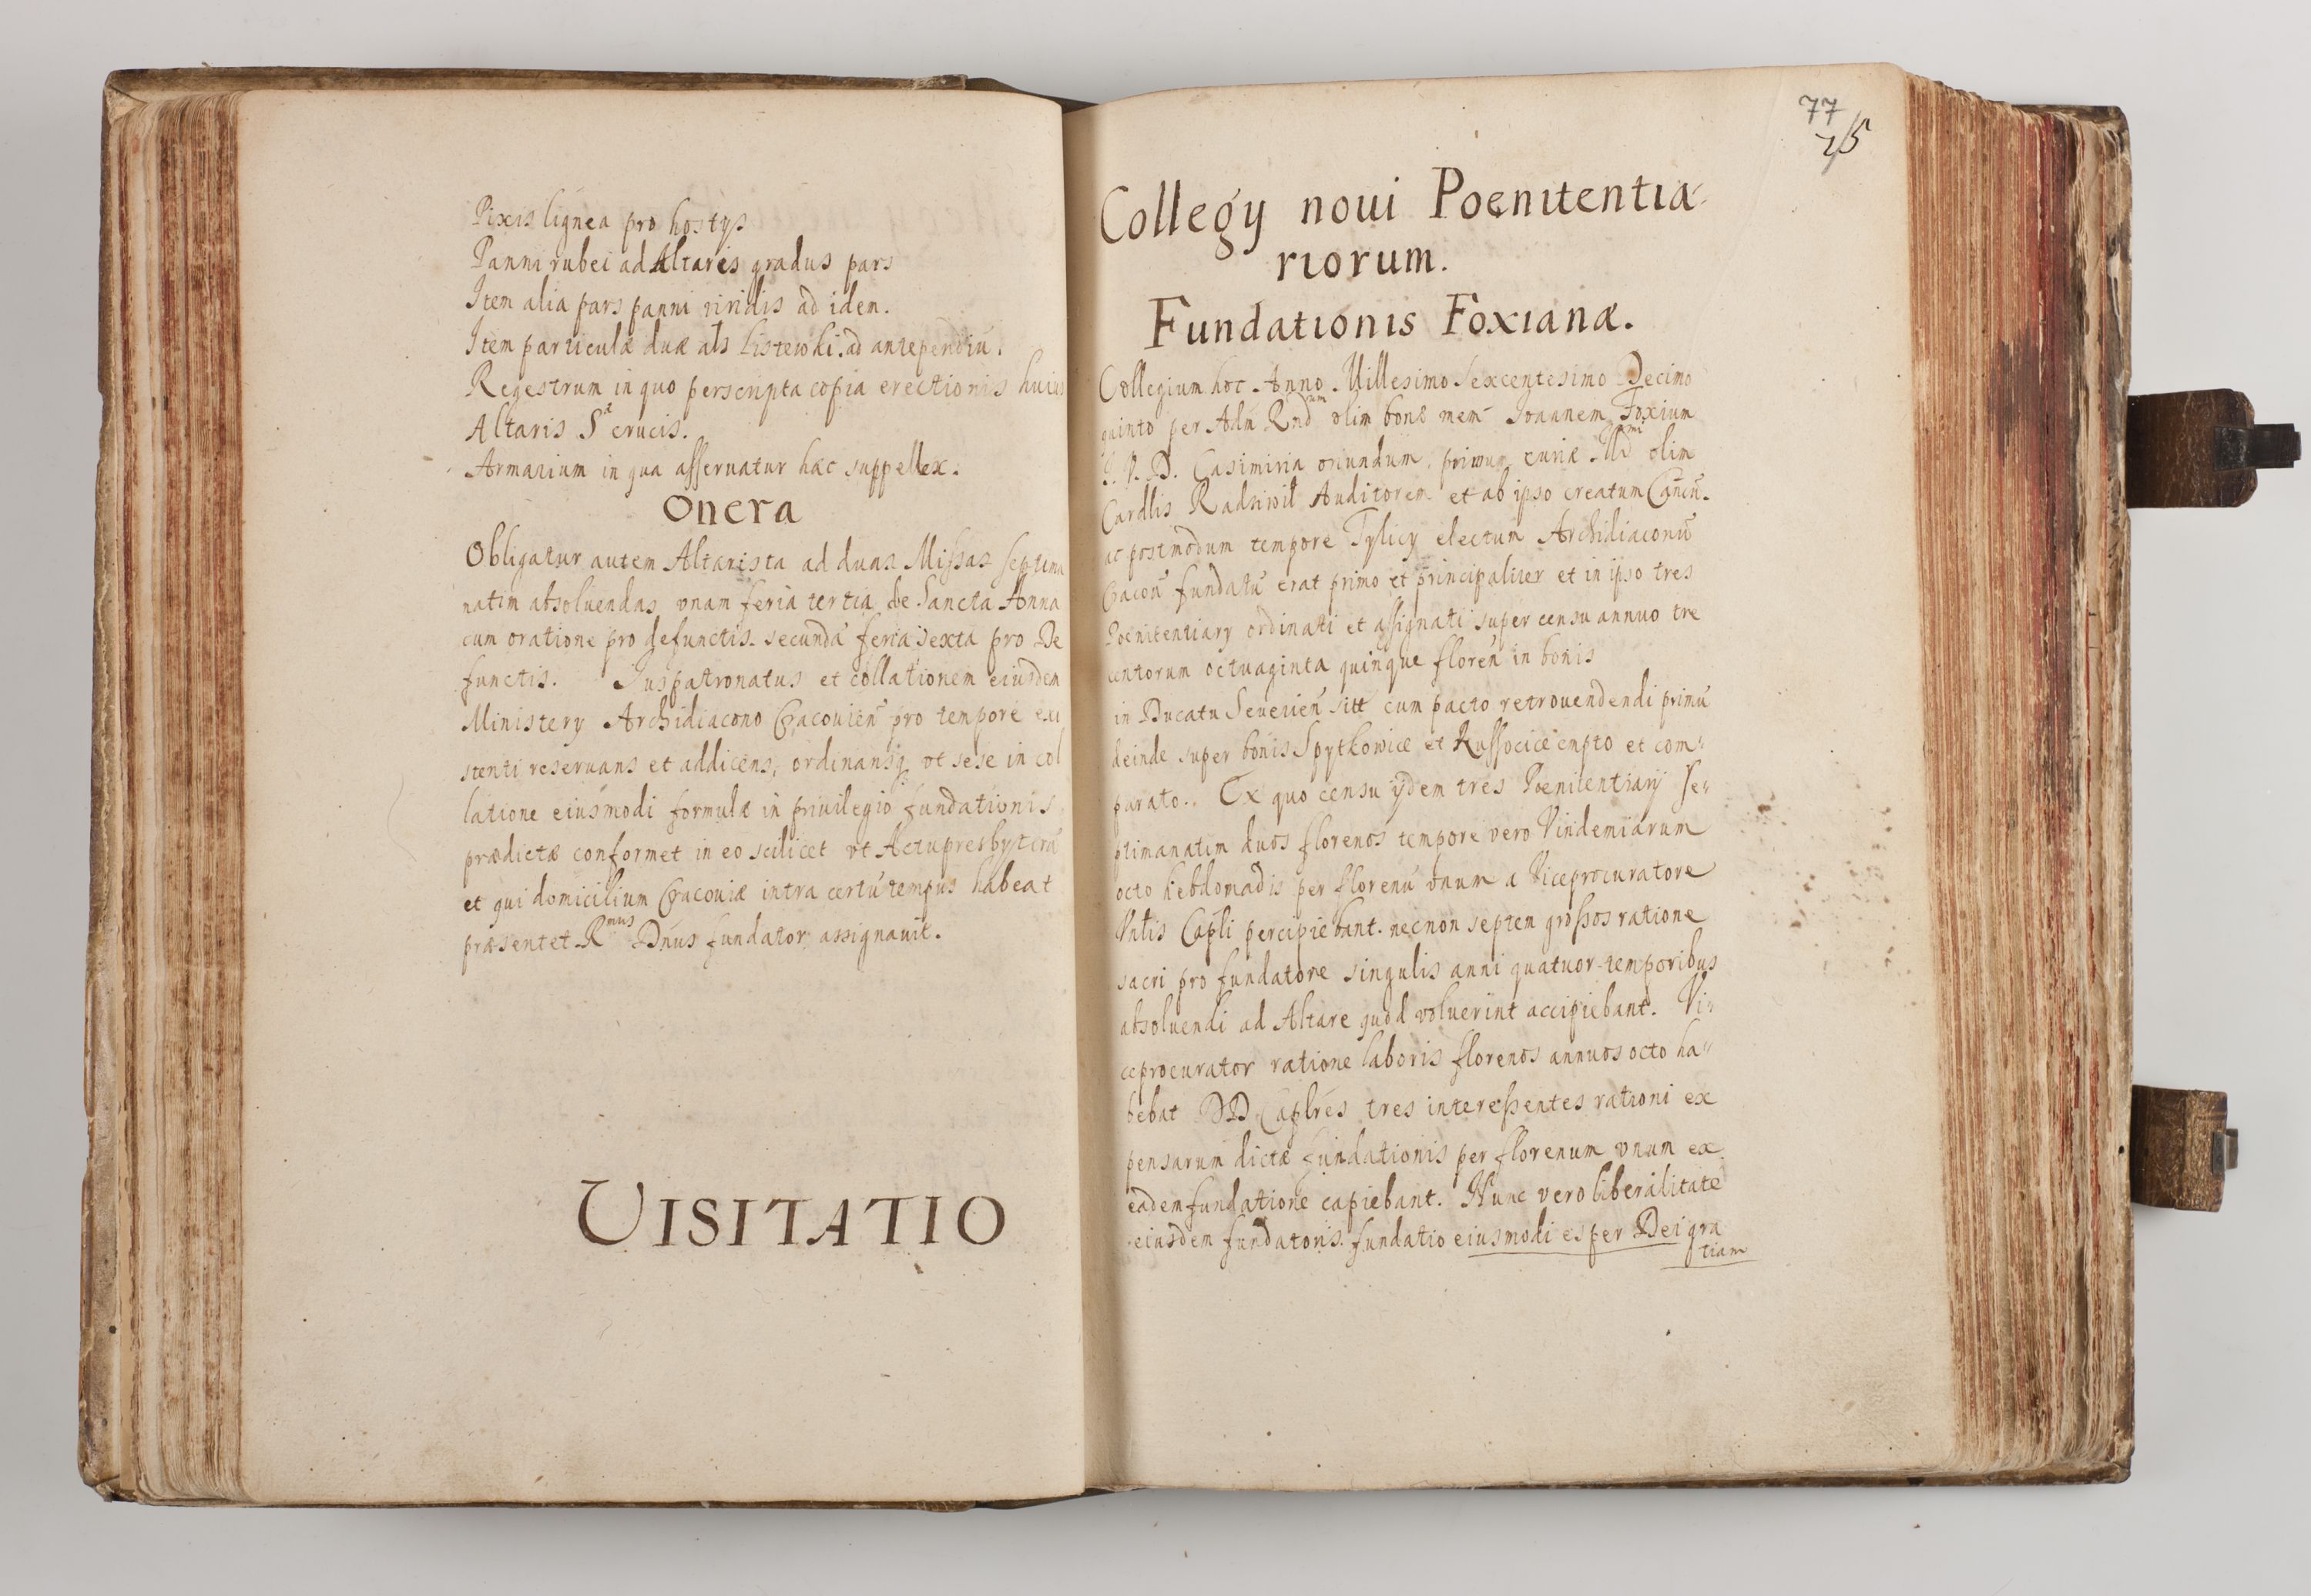 Pixis lignea pro hostys
Panni rubei ad Altaris gradus pars
Item alia pars panni viridis ad idem.
Item particulæ duæ als Listewki ad antependiũ.
Regestrum in quo perscripta copia erectionis huius
Altaris Sᵗᵉ crucis.
Armarium in qua asseruatur hæc suppellex.
Onera
Obligatur autem Altarista ad duas Missas septima
natim absoluendas vnam feria tertia de Sancta Anna
cum oratione pro defunctis. secundã feria sexta pro De
functis. Juspatronatus et collationem eiusdem
Ministery Archidiacono Cracouieñ pro tempore exi
stenti reseruans et addicens, ordinansq ut sese in col
latione eiusmodi formulæ in priuilegio fundationis
prædictæ conformet in eo scilicet vt Actupresbyterũ
et qui domicilium Cracouiæ intra certũ tempus habeat
præsentet Rᵐᵘˢ Dñus fundator assignauit.
VISITATIO
77
75
Collegy noui Poenitentia-
riorum.
Fundationis Foxianæ.
Collegium hoc Anno Millesimo Sexcentesimo Decimo
quinto per Adm Rndᵘᵐ olim bonæ mem Ioannem Foxium
J. V. D. Casimiria oriundum, primum curiæ Illᵐⁱ olim
Cardlis Radziwil Auditorem et ab ipso creatum Cancñ.
ac postmodum tempore Tylicy electum Archidiaconũ
Cracoũ fundatũ erat primo et principaliter et in ipso tres
Poenitentiary ordinati et assignati super censu annuo tre
centorum octuaginta quinque floreñ in bonis
in Ducatu Seuerieñ sitt cum pacto retrouendendi primũ
deinde super bonis Spytkowice et Russocice empto et com-
parato. Ex quo censu ijdem tres Poenitentiarij se-
ptimanatim duos florenos tempore vero Vindemiarum
octo hebdomadis per florenũ vnum a Viceprocuratore
Vnlis Capli percipiebant. necnon septem grossos ratione
sacri pro fundatore singulis anni quatuor temporibus
absoluendi ad Altare quod voluerint accipiebant. Vi-
ceprocurator ratione laboris florenos annuos octo ha-
bebat DD. Caplres tres interessentes rationi ex
pensarum dictæ fundationis per florenum vnum ex
eadem fundatione capiebant. Nunc vero liberalitate
eiusdem fundatoris fundatio eiusmodi es per Dei gra
tiam